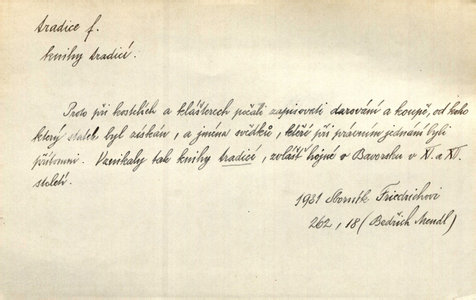 tradice f.
knihy tradicí:
Proto při kostelích a klášterech počali zapisovati darování a koupě, od koho
který statek byl získán, a jména svědků, kteří při právním jednání byli
přítomni. Vznikaly tak knihy tradicí, zvlášť hojné v Bavorsku v XI. a XII.
století.
1931 Sborník Friedrichovi
262, 18 (Bedřich Mendl)